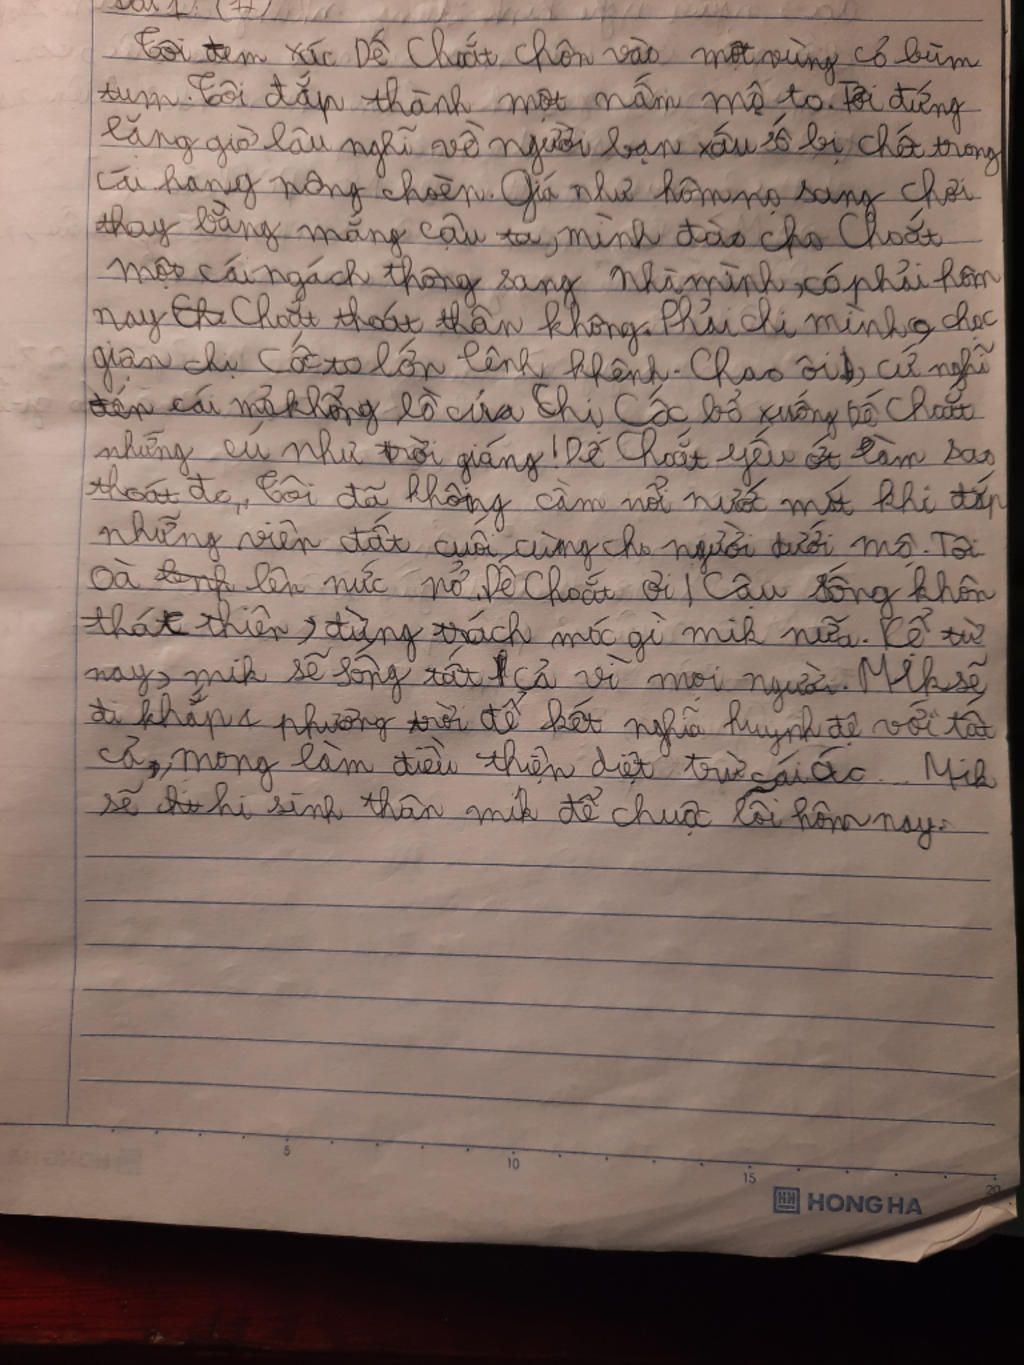 Tôi đem xác Dế Choắt chôn vào một vùng cỏ bùm
tum. Tôi đắp thành một nấm mộ to. Tôi đứng
lặng giờ lâu nghĩ về người bạn xấu số bị chết trong
cái hang nông choèn. Giá như hôm nọ sang chơi
thay bằng mắng cậu ta, mình đào cho Choắt
một cái ngách thông sang nhà mình, có phải hôm
nay Choắt thoát thân không. Phải chi mình chọc
giận chị Cốc to lớn lênh khênh. Chao ôi, cứ nghĩ
đến cái mỏ khổng lồ của Chị Cốc bổ xuống Dế Choắt
những cú như trời giáng! Dế Choắt yếu ớt làm sao
thoát đc, Tôi đã không cầm nổi nước mắt khi đắp
những viên đất cuối cùng cho người dưới mộ. Tôi
oà lên nức nở. Dế Choắt ơi! Cậu sống khôn
thác thiên, đừng trách móc gì mik nữa. Kể từ
nay, mik sẽ sống tất cả vì mọi người. Mik sẽ
đi khắp 4 phương trời để kết nghĩa huynh đệ với tất
cả, mong làm điều thiện diệt trừ cái ác... Mik
sẽ hi sinh thân mik để chuộc lỗi hôm nay.
5 10 15 20
HONG HA